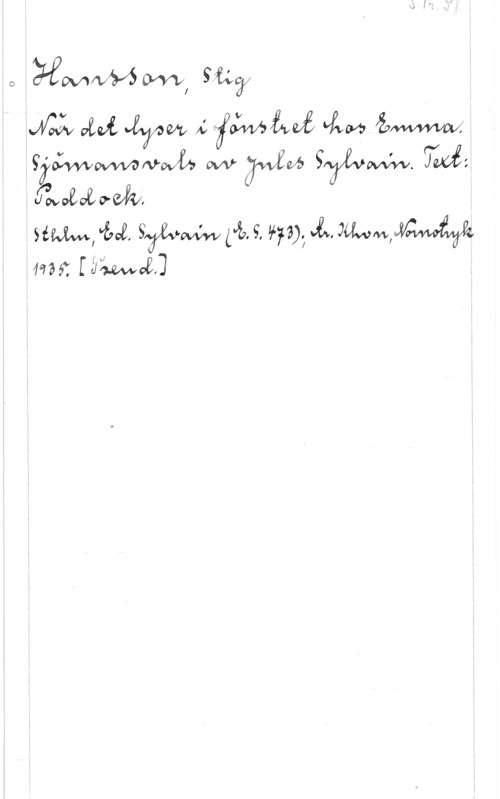 Hansson, Stig
När det lyser i fönstret hos Emma.
Sjömansvals av Jules Sylvain. Text:
Paddock.
Sthlm, Ed. Sylvain (E.S. 473); tr. Khvn, Nornotryk
1935. [Pseud.]